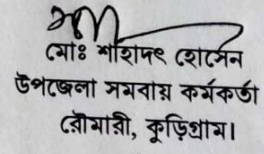 মোঃ শাহাদৎ হোসেন
উপজেলা সমবায় কর্মকর্তা
রৌমারী, কুড়িগ্রাম।